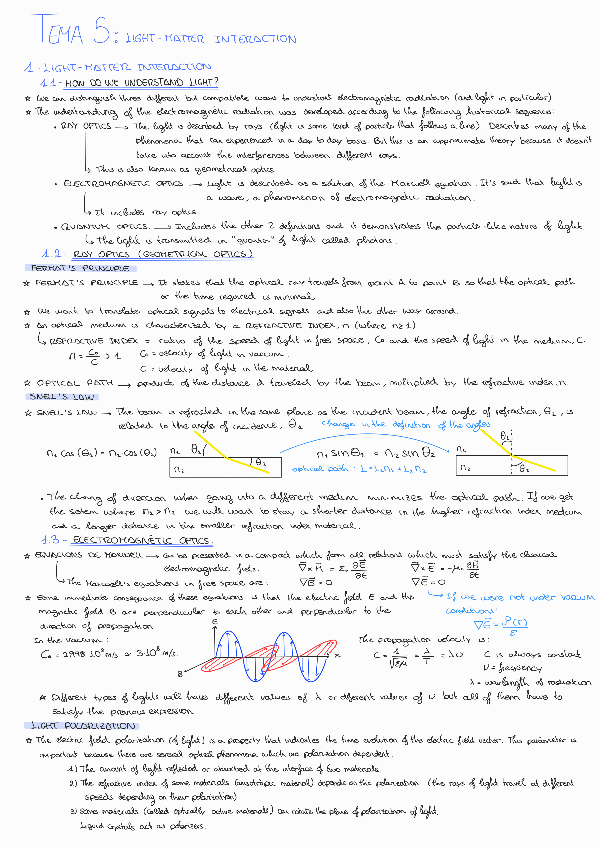 TEMA 5: LIGHT-MATTER INTERACTION
1.- LIGHT-MATTER INTERACTION
1.1.- HOW DO WE UNDERSTAND LIGHT?
* We can distinguish three different but compatible ways to understand electromagnetic radiation (and light in particular)
* The understanding of the electromagnetic radiation was developed according to the following historical sequence:
• RAY OPTICS → The light is described by rays (light is some kind of particle that follows a line). Describes many of the
phenomena that can experienced in a day to day basis. But this is an approximate theory because it doesn't
take into account the interferences between different rays.
↳ This is also known as geometrical optics
• ELECTROMAGNETIC OPTICS → Light is described as a solution of the Maxwell equation. It's said that light is
a wave, a phenomenon of electromagnetic radiation.
↳ It includes ray optics.
• QUANTUM OPTICS. → Includes the other 2 definitions and it demonstrates the particle-like nature of light
↳ The light is transmitted in "quanta" of light called photons.
1.2.- RAY OPTICS (GEOMETRICAL OPTICS)
FERMAT'S PRINCIPLE
* FERMAT'S PRINCIPLE → It states that the optical ray travels from point A to point B so that the optical path
or the time required is minimal.
* We want to translate optical signals to electrical signals and also the other way around.
* An optical medium is characterized by a REFRACTIVE INDEX, n (where n≥1)
↳ REFRACTIVE INDEX = ratio of the speed of light in free space, C₀ and the speed of light in the medium, C.
n = C₀/C > 1 C₀ = velocity of light in vacuum.
C = velocity of light in the material.
* OPTICAL PATH → product of the distance d traveled by the beam, multiplied by the refractive index n
SNELL'S LAW
* SNELL'S LAW → The beam is refracted in the same plane as the incident beam, the angle of refraction, θ₂, is
related to the angle of incidence, θ₂
change in the definition of the angles
n₁ cos(θ₁) = n₂ cos(θ₂) n₁ θ₁ n₂ θ₂ n₁ sin θ₁ = n₂ sin θ₂ n₁ θ₁ n₂ θ₂
optical path: L = L₁n₁ + L₂n₂
• The chang of direction when going into a different medium minimizes the optical path. If we get
the system where n₂ > n₁ we will want to stay a shorter distance in the higher refraction index medium
and a longer distance in the smaller refraction index material.
1.3.- ELECTROMAGNETIC OPTICS.
* EQUACIONS DE MAXWELL → Can be presented in a compact which form all relations which must satisfy the classical
electromagnetic field.
↳ The Maxwell's equations in free space are: ∇×H = ε₀ ∂E/∂t ∇×E = -μ₀ ∂H/∂t
∇E = 0 ∇E = 0
* Some immediate consequence of these equations is that the electric field E and the
magnetic field B are perpendicular to each other and perpendicular to the
direction of propagation
↳ If we were not under vacuum
conditions:
∇E = ρ(E)/ε
In the vacuum:
C₀ = 2.998·10⁸ m/s ≈ 3·10⁸ m/s.
E
B
x
The propagation velocity is:
C = 1/√εμ = λ/T = λν
C is always constant
ν = frequency
λ = wavelength of radiation
* Different types of lights will have different values of λ or different values of ν but all of them have to
satisfy the previous expression
LIGHT POLARIZATION
* The electric field polarization (of light) is a property that indicates the time evolution of the electric field vector. This parameter is
important because there are several optical phenomena which are polarization dependent.
1) The amount of light reflected or absorbed at the interface of two materials.
2) The refractive index of some materials (anisotropic material) depends on the polarization (the rays of light travel at different
speeds depending on their polarization)
3) Some materials (called optically active materials) can rotate the plane of polarization of light.
Liquid crystals act as polarizers.